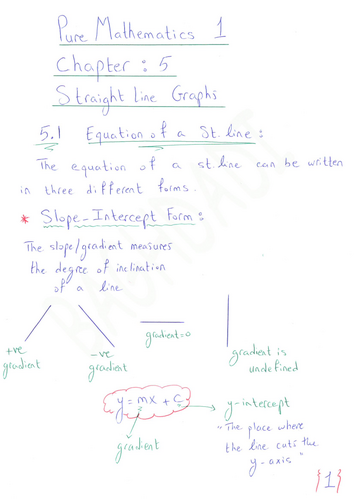 Pure Mathematics 1
Chapter : 5
Straight line Graphs
5.1 Equation of a St. line :
The equation of a st. line can be written
in three different forms.
* Slope-Intercept Form :
The slope/gradient measures
the degree of inclination
of a line
+ve
gradient
-ve
gradient
gradient=0
gradient is
undefined
y = mx + c
gradient
y-intercept
"The place where
the line cuts the
y-axis"
{1}